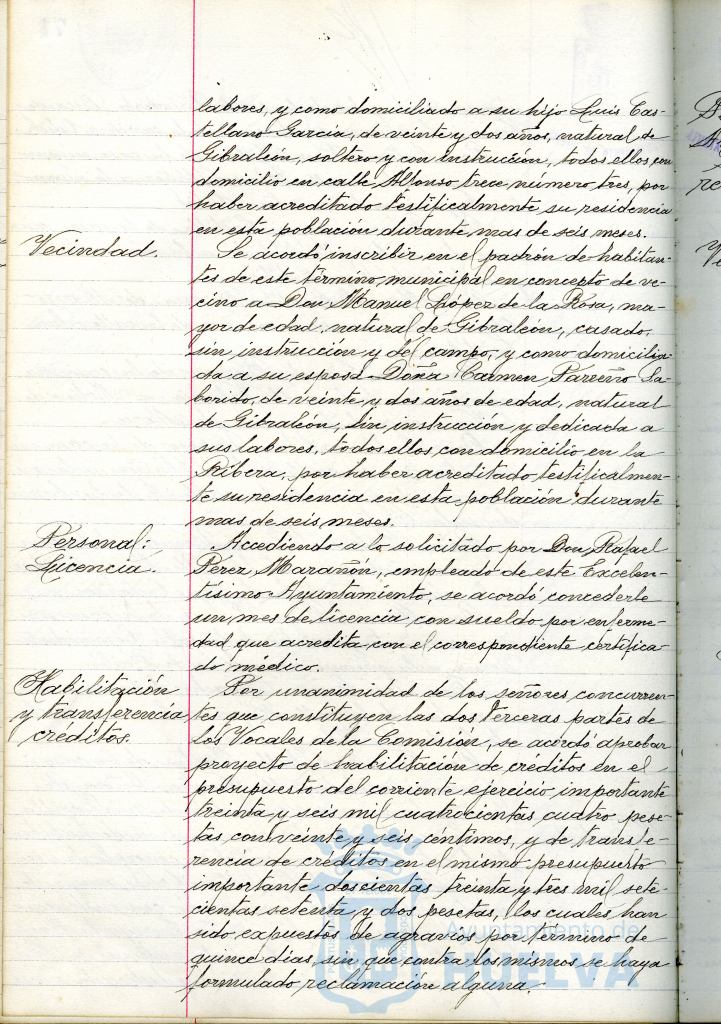 labores, y como domiciliado a su hijo Luis Cas-
tellano García, de veinte y dos años, natural de
Gibraleón, soltero y con instrucción, todos ellos con
domicilio en calle Alfonso trece número tres, por
haber acreditado testificalmente su residencia
en esta población durante mas de seis meses.
Vecindad.
Se acordó inscribir en el padrón de habitan-
tes de este término municipal en concepto de ve-
cino a Don Manuel López de la Rosa, ma-
yor de edad, natural de Gibraleón, casado,
sin instrucción y del campo, y como domicilia-
da a su esposa Doña Carmen Pareño Sa-
borido, de veinte y dos años de edad, natural
de Gibraleón, sin instrucción y dedicada a
sus labores, todos ellos con domicilio en la
Ribera, por haber acreditado testificalmen-
te su residencia en esta población durante
mas de seis meses.
Personal:
Licencia.
Accediendo a lo solicitado por Don Rafael
Pérez Marañón, empleado de este Excelen-
tísimo Ayuntamiento, se acordó concederle
un mes de licencia con sueldo por enferme-
dad que acredita con el correspondiente certifica-
do médico.
Habilitación
y transferencia
créditos.
Por unanimidad de los señores concurren-
tes que constituyen las dos terceras partes de
los Vocales de la Comisión, se acordó aprobar
proyecto de habilitación de créditos en el
presupuesto del corriente ejercicio importante
treinta y seis mil cuatrocientas cuatro pese-
tas con veinte y seis céntimos, y de transfe-
rencia de créditos en el mismo presupuesto
importante doscientas treinta y tres mil sete-
cientas setenta y dos pesetas, los cuales han
sido expuestos de agravios por término de
quince días, sin que contra los mismos se haya
formulado reclamación alguna.
Ayuntamiento de
HUELVA